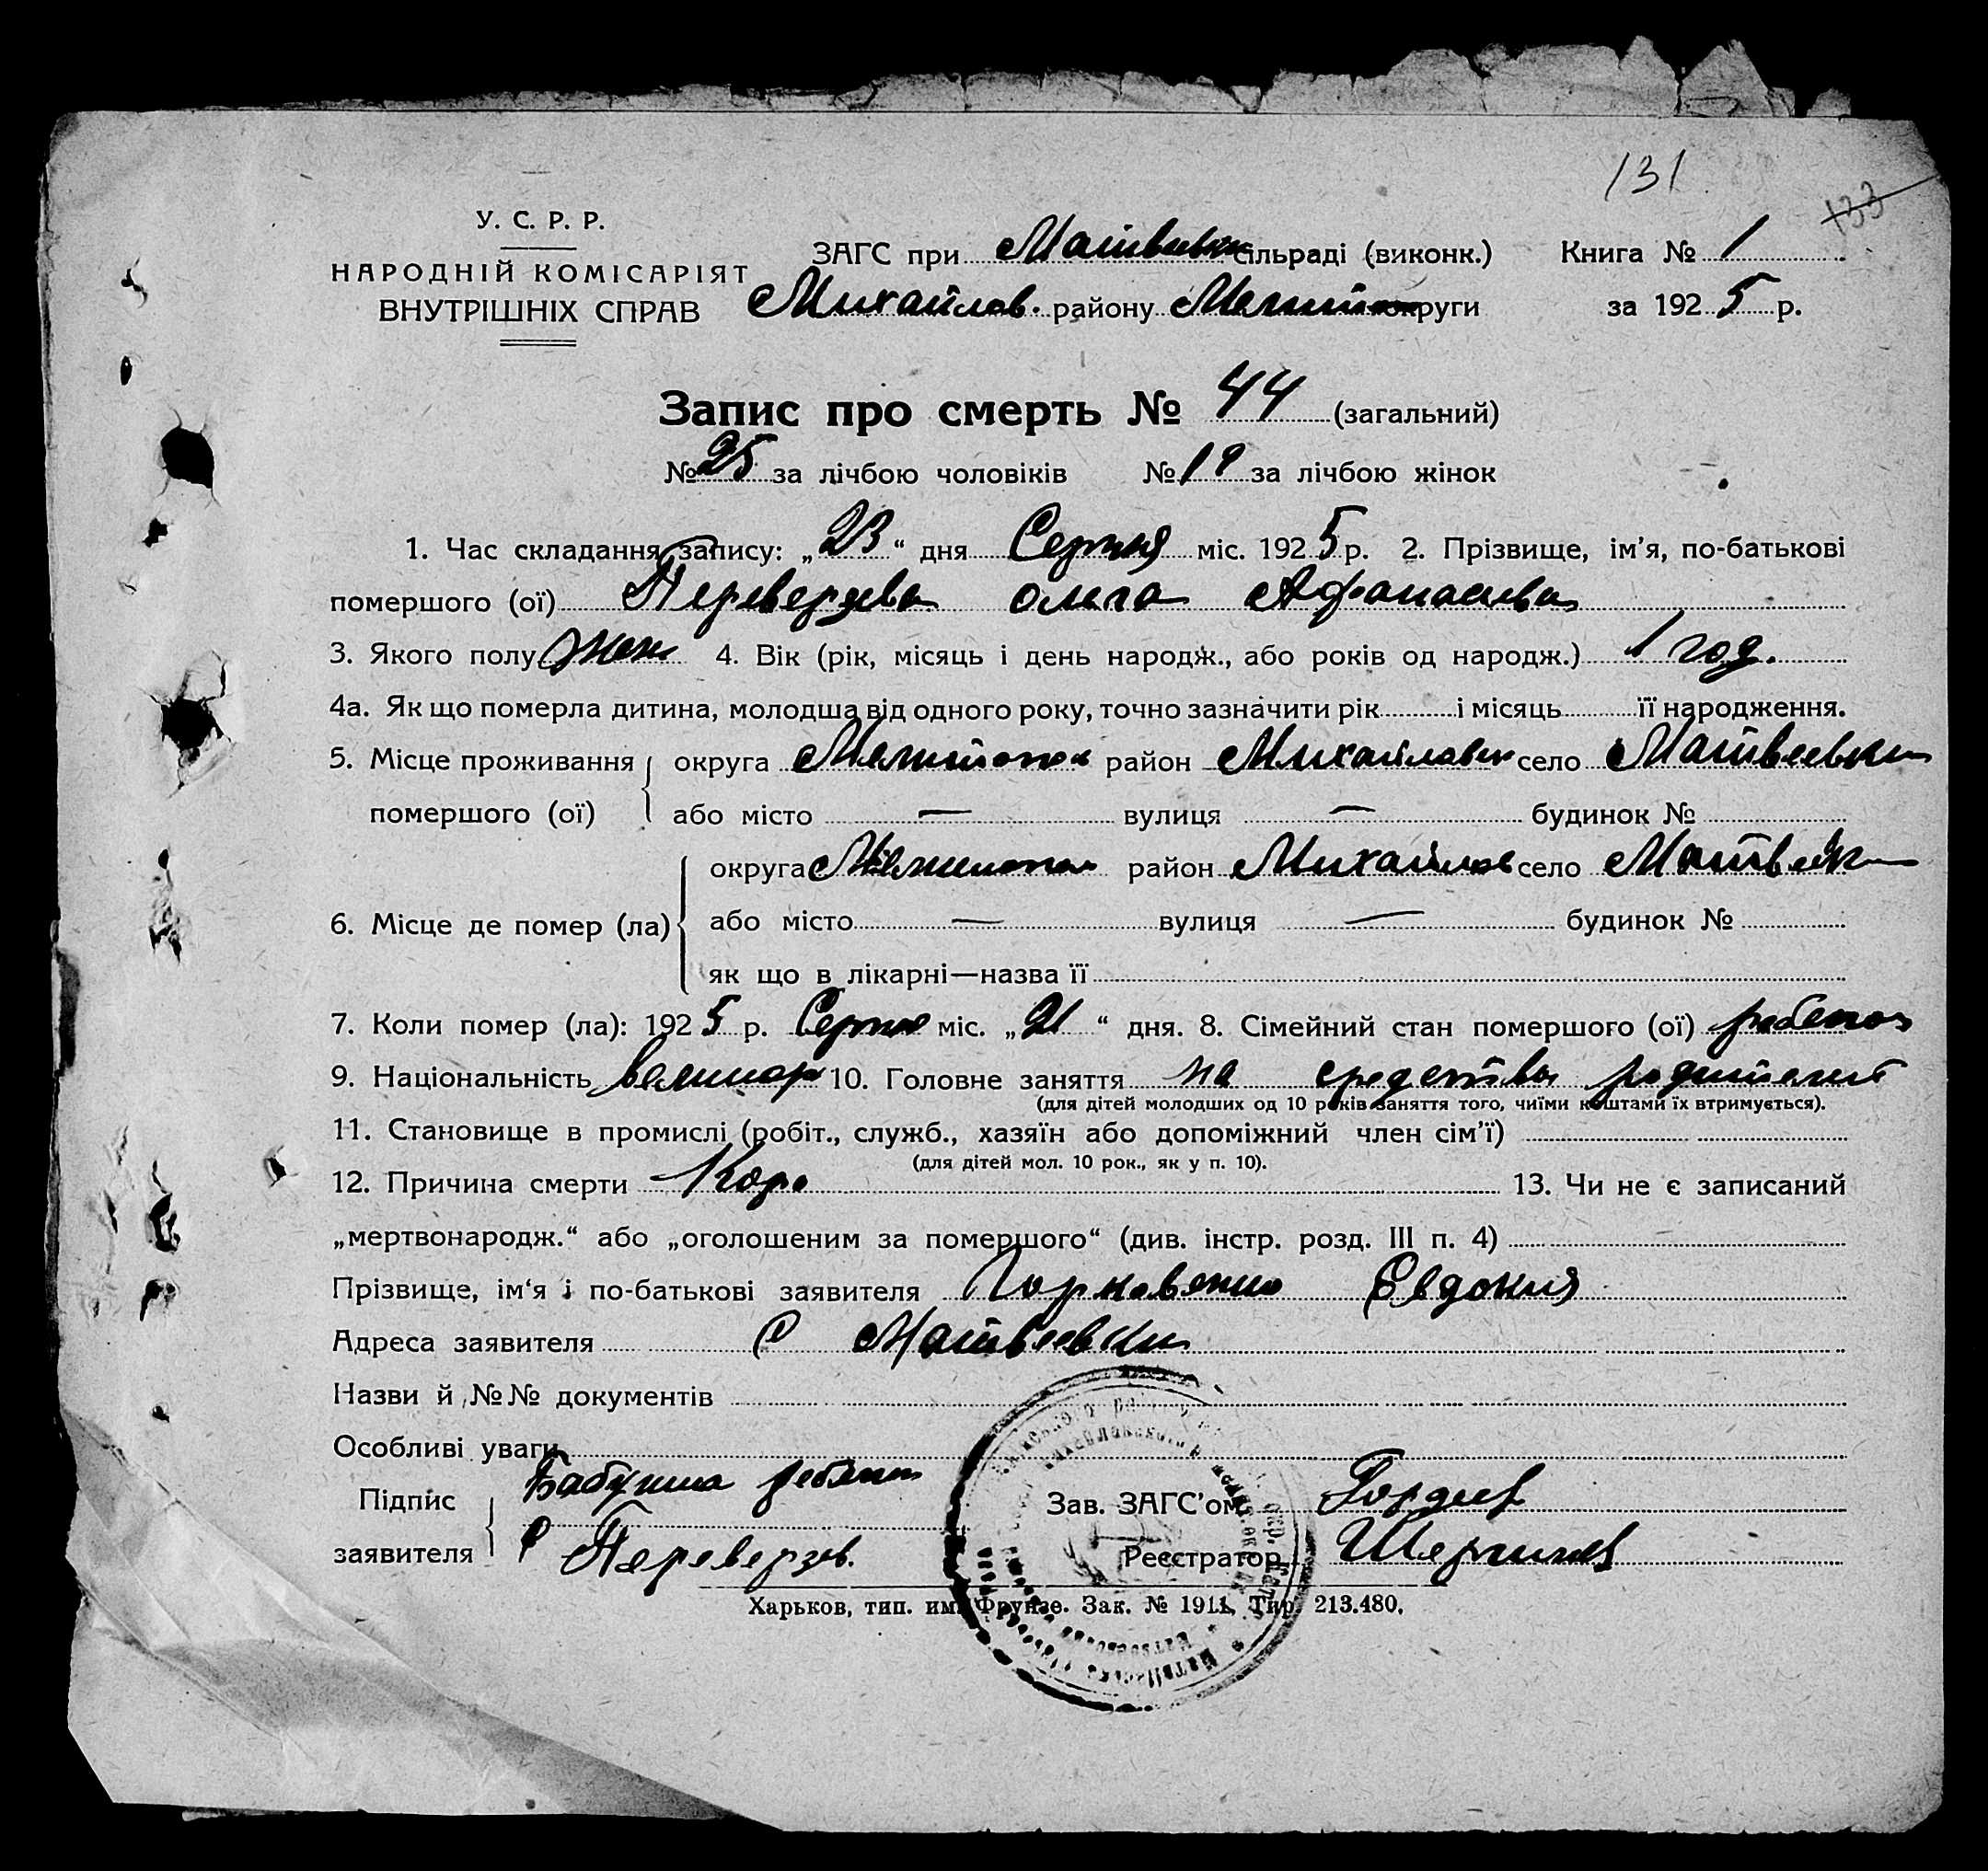 131
133
У. С. Р. Р.
НАРОДНІЙ КОМІСАРІЯТ
ВНУТРІШНІХ СПРАВ
ЗАГС при Матвеевк сільраді (виконк.)
Михайлов. району Мелитоп округи
Книга № 1
за 1925 р.
Запис про смерть № 44 (загальний)
№ 25 за лічбою чоловіків № 19 за лічбою жінок
1. Час складання запису: „23“ дня Серпня міс. 1925 р. 2. Прізвище, ім’я, по-батькові
помершого (ої) Переверзева Ольга Афанасиева
3. Якого полу жен 4. Вік (рік, місяць і день народж., або років од народж.) 1 год.
4а. Як що померла дитина, молодша від одного року, точно зазначити рік і місяць її народження.
5. Місце проживання помершого (ої) округа Мелитопол район Михайловск село Матвеевки
або місто — вулиця — будинок №
6. Місце де помер (ла) округа Мелитопол район Михайлов село Матвеевк
або місто — вулиця — будинок №
як що в лікарні—назва її
7. Коли помер (ла): 1925 р. Серпня міс. „21“ дня. 8. Сімейний стан помершого (ої) ребенок
9. Національність великор 10. Головне заняття на средства родителей
(для дітей молодших од 10 років заняття того, чиїми коштами їх втримується).
11. Становище в промислі (робіт., служб., хазяїн або допоміжний член сім’ї)
(для дітей мол. 10 рок., як у п. 10).
12. Причина смерти Кор 13. Чи не є записаний
„мертвонародж.“ або „оголошеним за помершого“ (див. інстр. розд. III п. 4)
Прізвище, ім‘я і по-батькові заявителя Горковенко Евдокия
Адреса заявителя С Матвеевки
Назви й №№ документів
Особливі уваги
Підпис заявителя Бабушка ребенка
Переверзев.
Зав. ЗАГС’ом Гордеев
Реєстратор
Харьков, тип. им. Фрунзе. Зак. № 1911. Тир. 213.480.